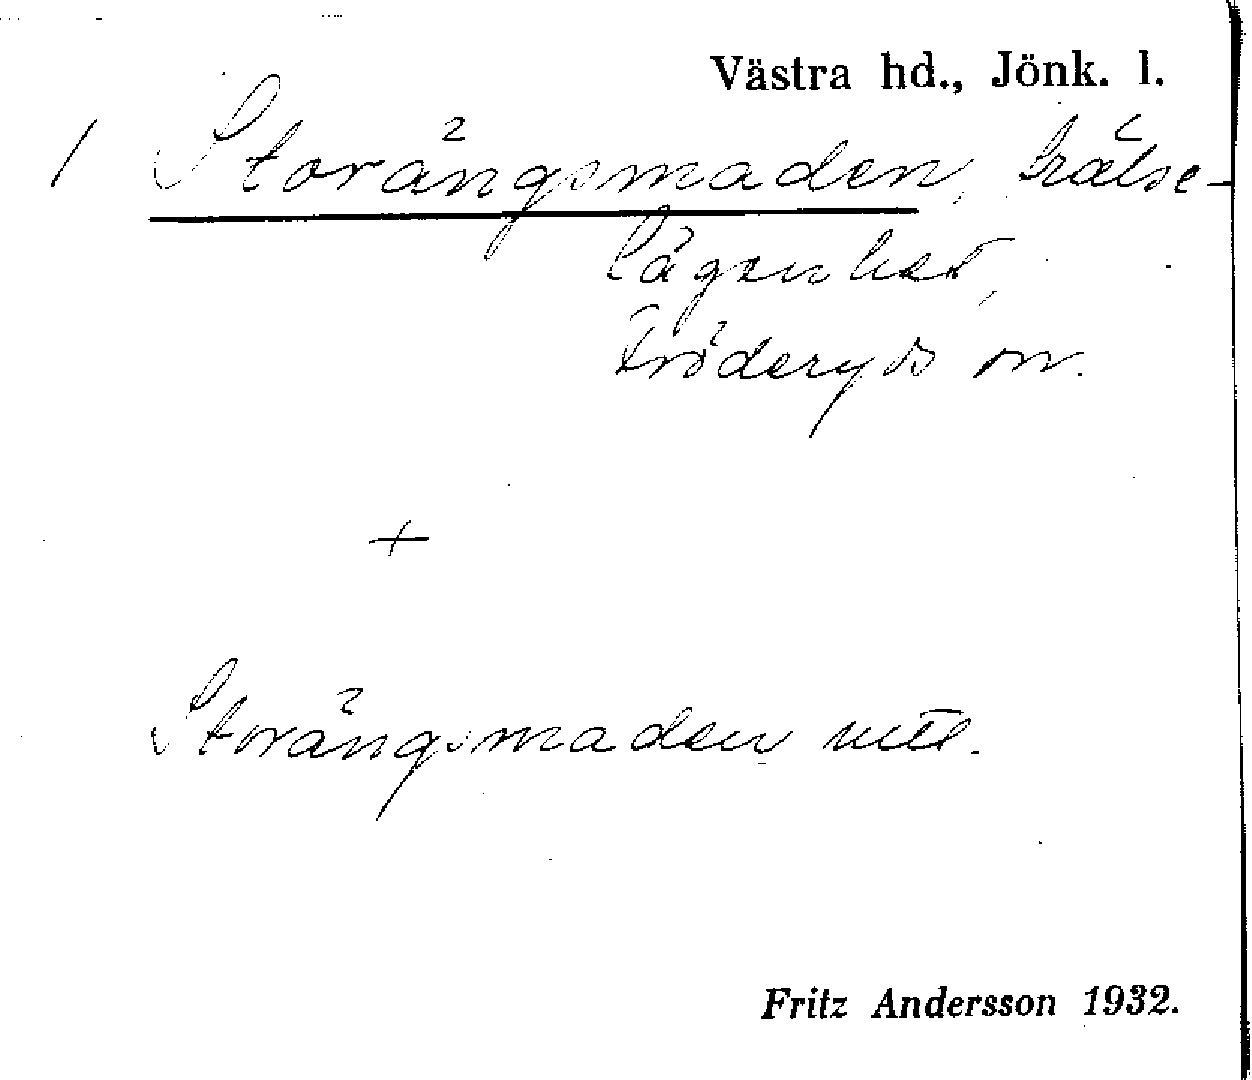 Västra hd., Jönk. l.
/ Storängsmaden, frälse-
lägenhet,
Fröderyds sn.
+
Storängsmaden
Fritz Andersson 1932.